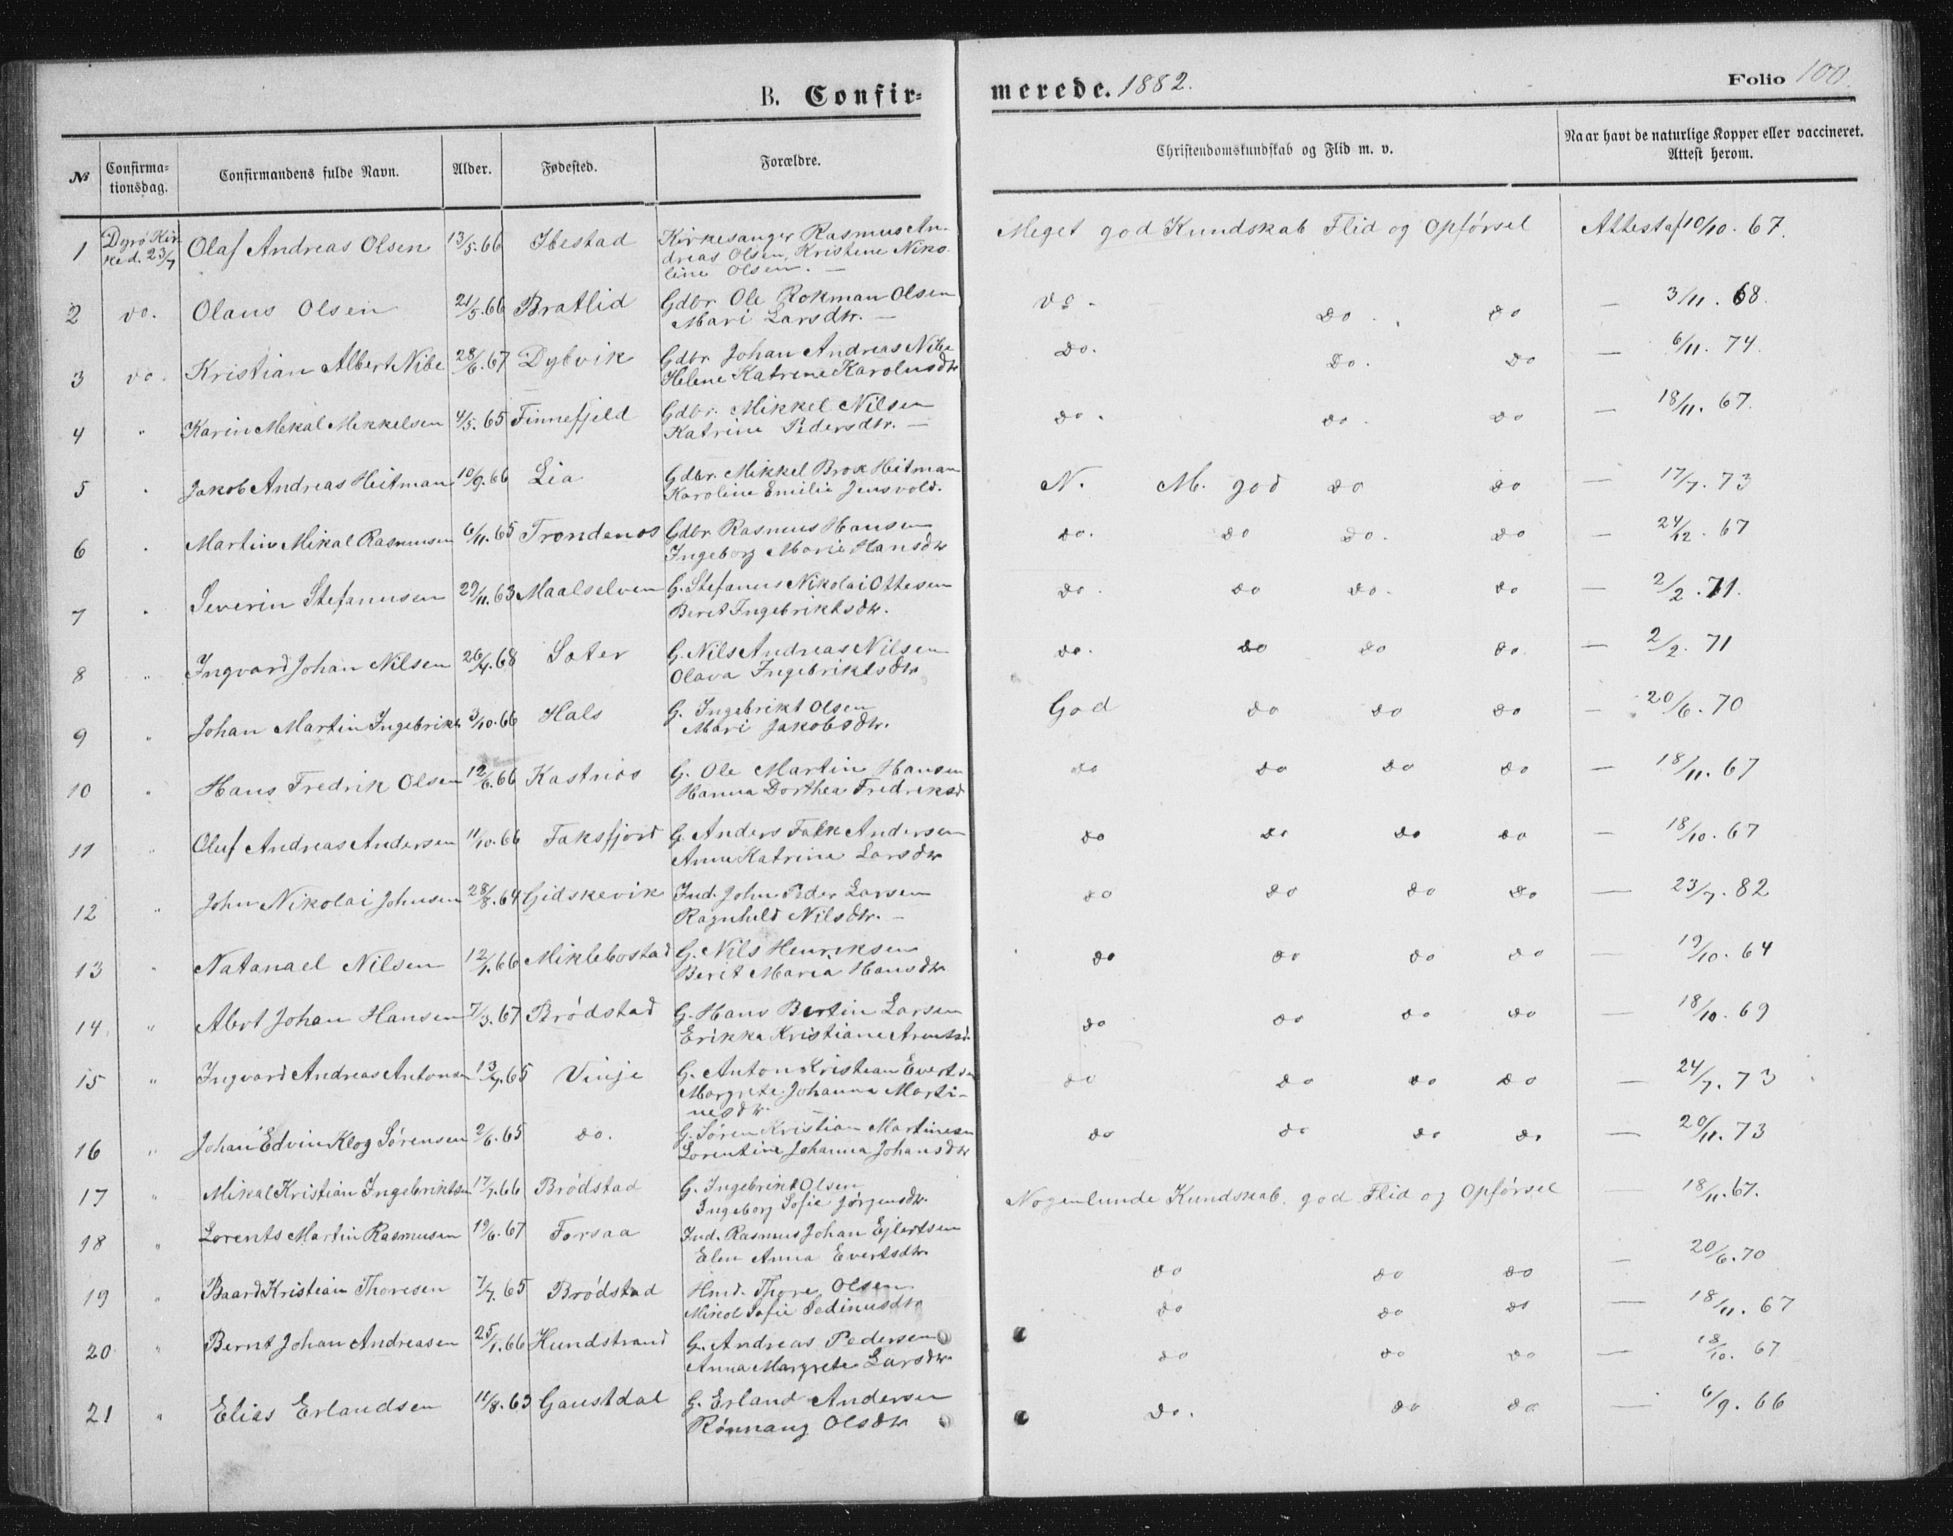 B. Confir-merede. 1882. Folio 100.
№ Confirma-tionsdag. Confirmandens fulde Navn. Alder. Fødested. Forældre. Christendomskundskab og Flid m. v. Naar havt de naturlige Kopper eller vaccineret. Attest herom.
1 Dyrø Kirke d. 23/7 Olaf Andreas Olsen 13/5.66 Ibestad Kirkesanger Rasmus An- Meget god Kundskab Flid og Opførsel Attest af 10/10. 67.
dreas Olsen, Kristine Niko-
line Olsen. —
2 do. Olaus Olsen 21/5.66 Bratlid Gdbr. Ole Rokman Olsen do. do. do — 3/11. 68.
Mari Larsdtr. —
3 do. Kristian Albert Nibe 28/6.67 Dybvik Gdbr. Johan Andreas Nibe do. do. do — 6/11. 74.
Helene Katrine Karolusdtr
4 " Karin Mekal Mikkelsen 4/5.65 Finnefjeld Gdbr. Mikkel Nilsen do. do. do — 18/11. 67.
Katrine Pedersdtr. —
5 " Jakob Andreas Heitman 10/9.66 Lia Gdbr. Mikkel Brox Heitman N. M. god do do — 17/7. 73
Karoline Emilie Jensvold.
6 " Martin Mikal Rasmusen 6/11.65 Trondenes Gdbr Rasmus Hansen do. do do. do — 24/12. 67
Ingeborg Marie Hansdtr
7 " Severin Stefanusen 29/11.63 Maalselven G. Stefanus Nikolai Ottesen do. do do. do — 2/2. 71.
Beret Ingebriktsdtr.
8 " Ingvard Johan Nilsen 26/4.68 Sæter G. Nils Andreas Nilsen do. do do do. — 2/2. 71
Olava Ingebriktsdtr
9 " Johan Martin Ingebrikts 3/10.66 Hals G. Ingebrikt Olsen God do do do — 20/6. 70
Mari Jakobsdtr.
10 " Hans Fredrik Olsen 12/6.66 Kastnes G. Ole Martin Hansen do do do do — 18/11. 67
Hanna Dorthea Fredriksd
11 " Oluf Andreas Andersen 11/10.66 Faksfjord G. Anders Falk Andersen do do do do — 18/10. 67
Anne Katrine Larsdtr
12 " John Nikolai Johnsen 28/8.64 Gidskevik Ind. John Peder Larsen do do do do — 23/7. 82
Ragnhild Nilsdtr. —
13 " Natanael Nilsen 12/1.66 Miklebostad G. Nils Henriksen do do do do — 19/10. 64
Berit Maria Hansdtr
14 " Abert Johan Hansen 7/3.67 Brødstad G. Hans Bertin Larsen do do do do — 18/10. 69
Erikka Kristiane Arentsd.
15 " Ingvard Andreas Antonsen 13/7.65 Vinje G. Anton Kristian Evertsen do do do do — 24/7. 73
Margrete Johanna Marti-
nesdtr.
16 " Johan Edvin Klog Sørensen 2/6.65 do. G. Søren Kristian Martinesen do do do do — 20/11. 73
Lorentine Johanna Johansdtr
17 " Mikal Kristian Ingebriktsen 17/7.66 Brødstad G. Ingebrikt Olsen Nogenlunde Kundskab. god Flid og Opførsel — 18/11. 67.
Ingeborg Sofie Jørgensdtr.
18 " Lorents Martin Rasmusen 19/6.67 Forsaa Ind. Rasmus Johan Ejlertsen do do do — 20/6. 70
Elen Anna Evertsdtr
19 " Baard Kristian Thoresen 7/7.65 Brødstad Hmd. Thore Olsen do do do — 18/11. 67
Sofie
20 " Bernt Johan Andreasen 25/1.66 Hundstrand G. Andreas Pedersen do do do — 18/10. 67
Anna Margrete Larsdtr
21 " Elias Erlandsen 11/8.63 Gaustdal G. Erland Andersen do. do do — 6/9. 66
Rønnaug Olsdtr